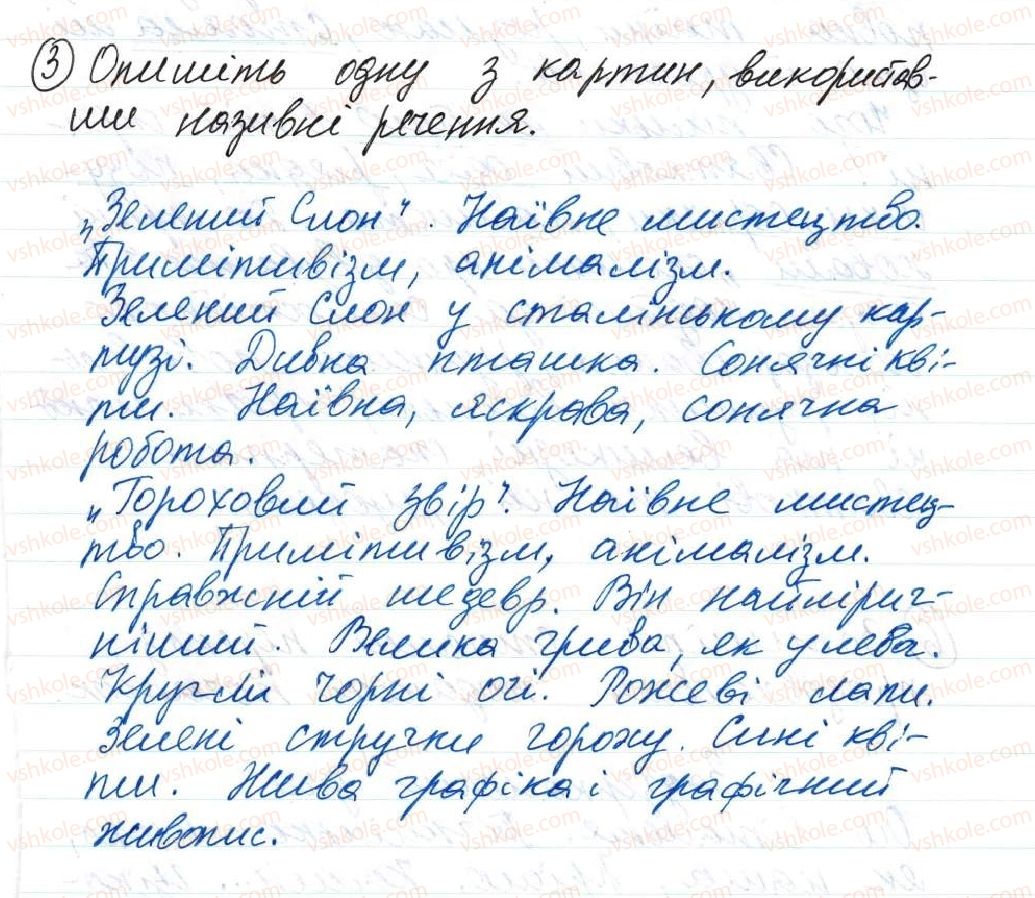 ③ Опишіть одну з картин, використав-
ши називні речення.
„Зелений Слон". Наївне мистецтво.
Примітивізм, анімалізм.
Зелений Слон у сталінському кар-
тузі. Дивна пташка. Сонячні кві-
ти. Наївна, яскрава, сонячна
робота.
„Гороховий звір". Наївне мистец-
тво. Примітивізм, анімалізм.
Справжній шедевр. Він найліри-
чніший. Велика грива, як у лева.
Круглі чорні очі. Рожеві лапи.
Зелені стручки гороху. Сині кві-
ти. Жива графіка і графічний
живопис.